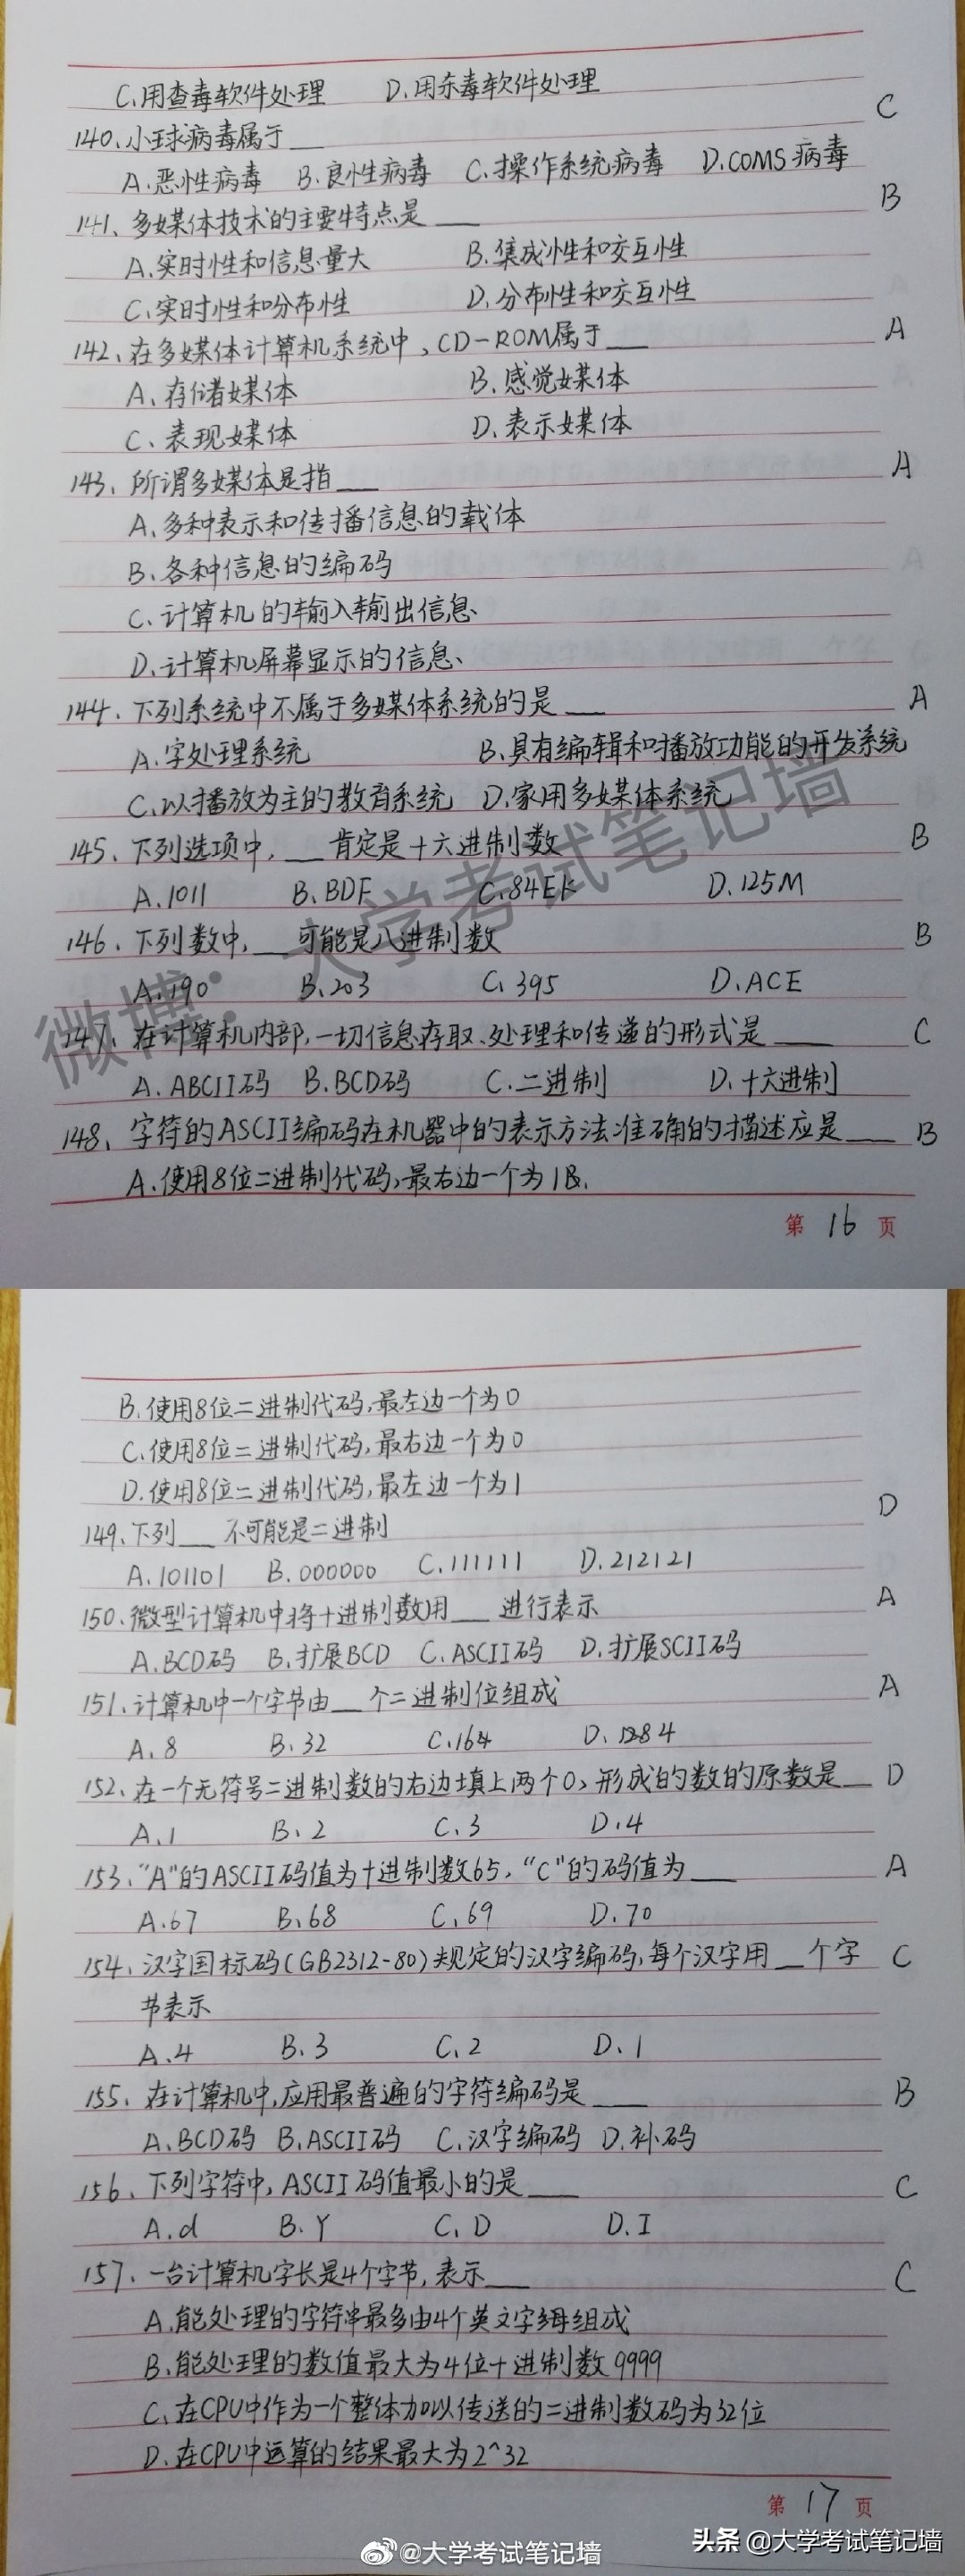 C.用查毒软件处理 D.用杀毒软件处理
140、小球病毒属于___ C
A.恶性病毒 B.良性病毒 C.操作系统病毒 D.COMS病毒
141、多媒体技术的主要特点是___ B
A.实时性和信息量大 B.集成性和交互性
C.实时性和分布性 D.分布性和交互性
142、在多媒体计算机系统中、CD-ROM属于___ A
A、存储媒体 B.感觉媒体
C、表现媒体 D.表示媒体
143、所谓多媒体是指___ A
A、多种表示和传播信息的载体
B、各种信息的编码
C、计算机的输入输出信息
D.计算机屏幕显示的信息
144、下列系统中不属于多媒体系统的是___ A
A.字处理系统 B.具有编辑和播放功能的开发系统
C.以播放为主的教育系统 D.家用多媒体系统
145、下列选项中,___肯定是十六进制数 B
A.1011 B.BDF C.84EK D.125M
146、下列数中,___可能是八进制数 B
A.190 B.203 C.395 D.ACE
147、在计算机内部,一切信息存取、处理和传递的形式是___ C
A.ABCII码 B.BCD码 C.二进制 D.十六进制
148、字符的ASCII编码在机器中的表示方法准确的描述应是___ B
A.使用8位二进制代码,最右边一个为1
第 16 页
微博:大学考试笔记墙
B.使用8位二进制代码,最左边一个为0
C.使用8位二进制代码,最右边一个为0
D.使用8位二进制代码,最左边一个为1
149、下列___不可能是二进制 D
A.101101 B.000000 C.111111 D.212121
150、微型计算机中将十进制数用___进行表示 A
A.BCD码 B.扩展BCD C.ASCII码 D.扩展SCII码
151、计算机中一个字节由___个二进制位组成 A
A.8 B.32 C.164 D.1284
152、在一个无符号二进制数的右边填上两个0,形成的数的原数是___ D
A.1 B.2 C.3 D.4
153、"A"的ASCII码值为十进制数65,"C"的码值为___ A
A.67 B.68 C.69 D.70
154、汉字国标码(GB2312-80)规定的汉字编码,每个汉字用___个字 C
节表示
A.4 B.3 C.2 D.1
155、在计算机中,应用最普遍的字符编码是___ B
A.BCD码 B.ASCII码 C.汉字编码 D.补码
156、下列字符中,ASCII码值最小的是___ C
A.d B.Y C.D D.I
157、一台计算机字长是4个字节,表示___ C
A.能处理的字符串最多由4个英文字母组成
B.能处理的数值最大为4位十进制数9999
C.在CPU中作为一个整体加以传送的二进制数码为32位
D.在CPU中运算的结果最大为2^32
第 17 页
@大学考试笔记墙
头条 @大学考试笔记墙